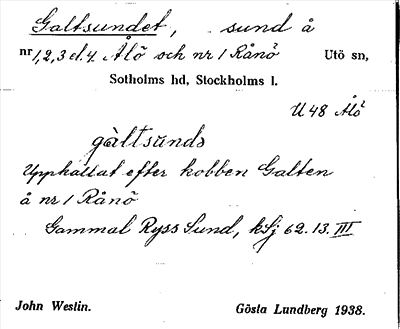 Galtsundet, sund å
nr 1,2,3 el. 4. Ålö och nr 1 Rånö Utö sn,
Sotholms hd, Stockholms l.
U 48 Ålö
gàltsŭnds
Upphattat efter kobben Galten
å nr 1 Rånö
Gammal Ryss Sund, kSj 62.13.III
John Westin. Gösta Lundberg 1938.